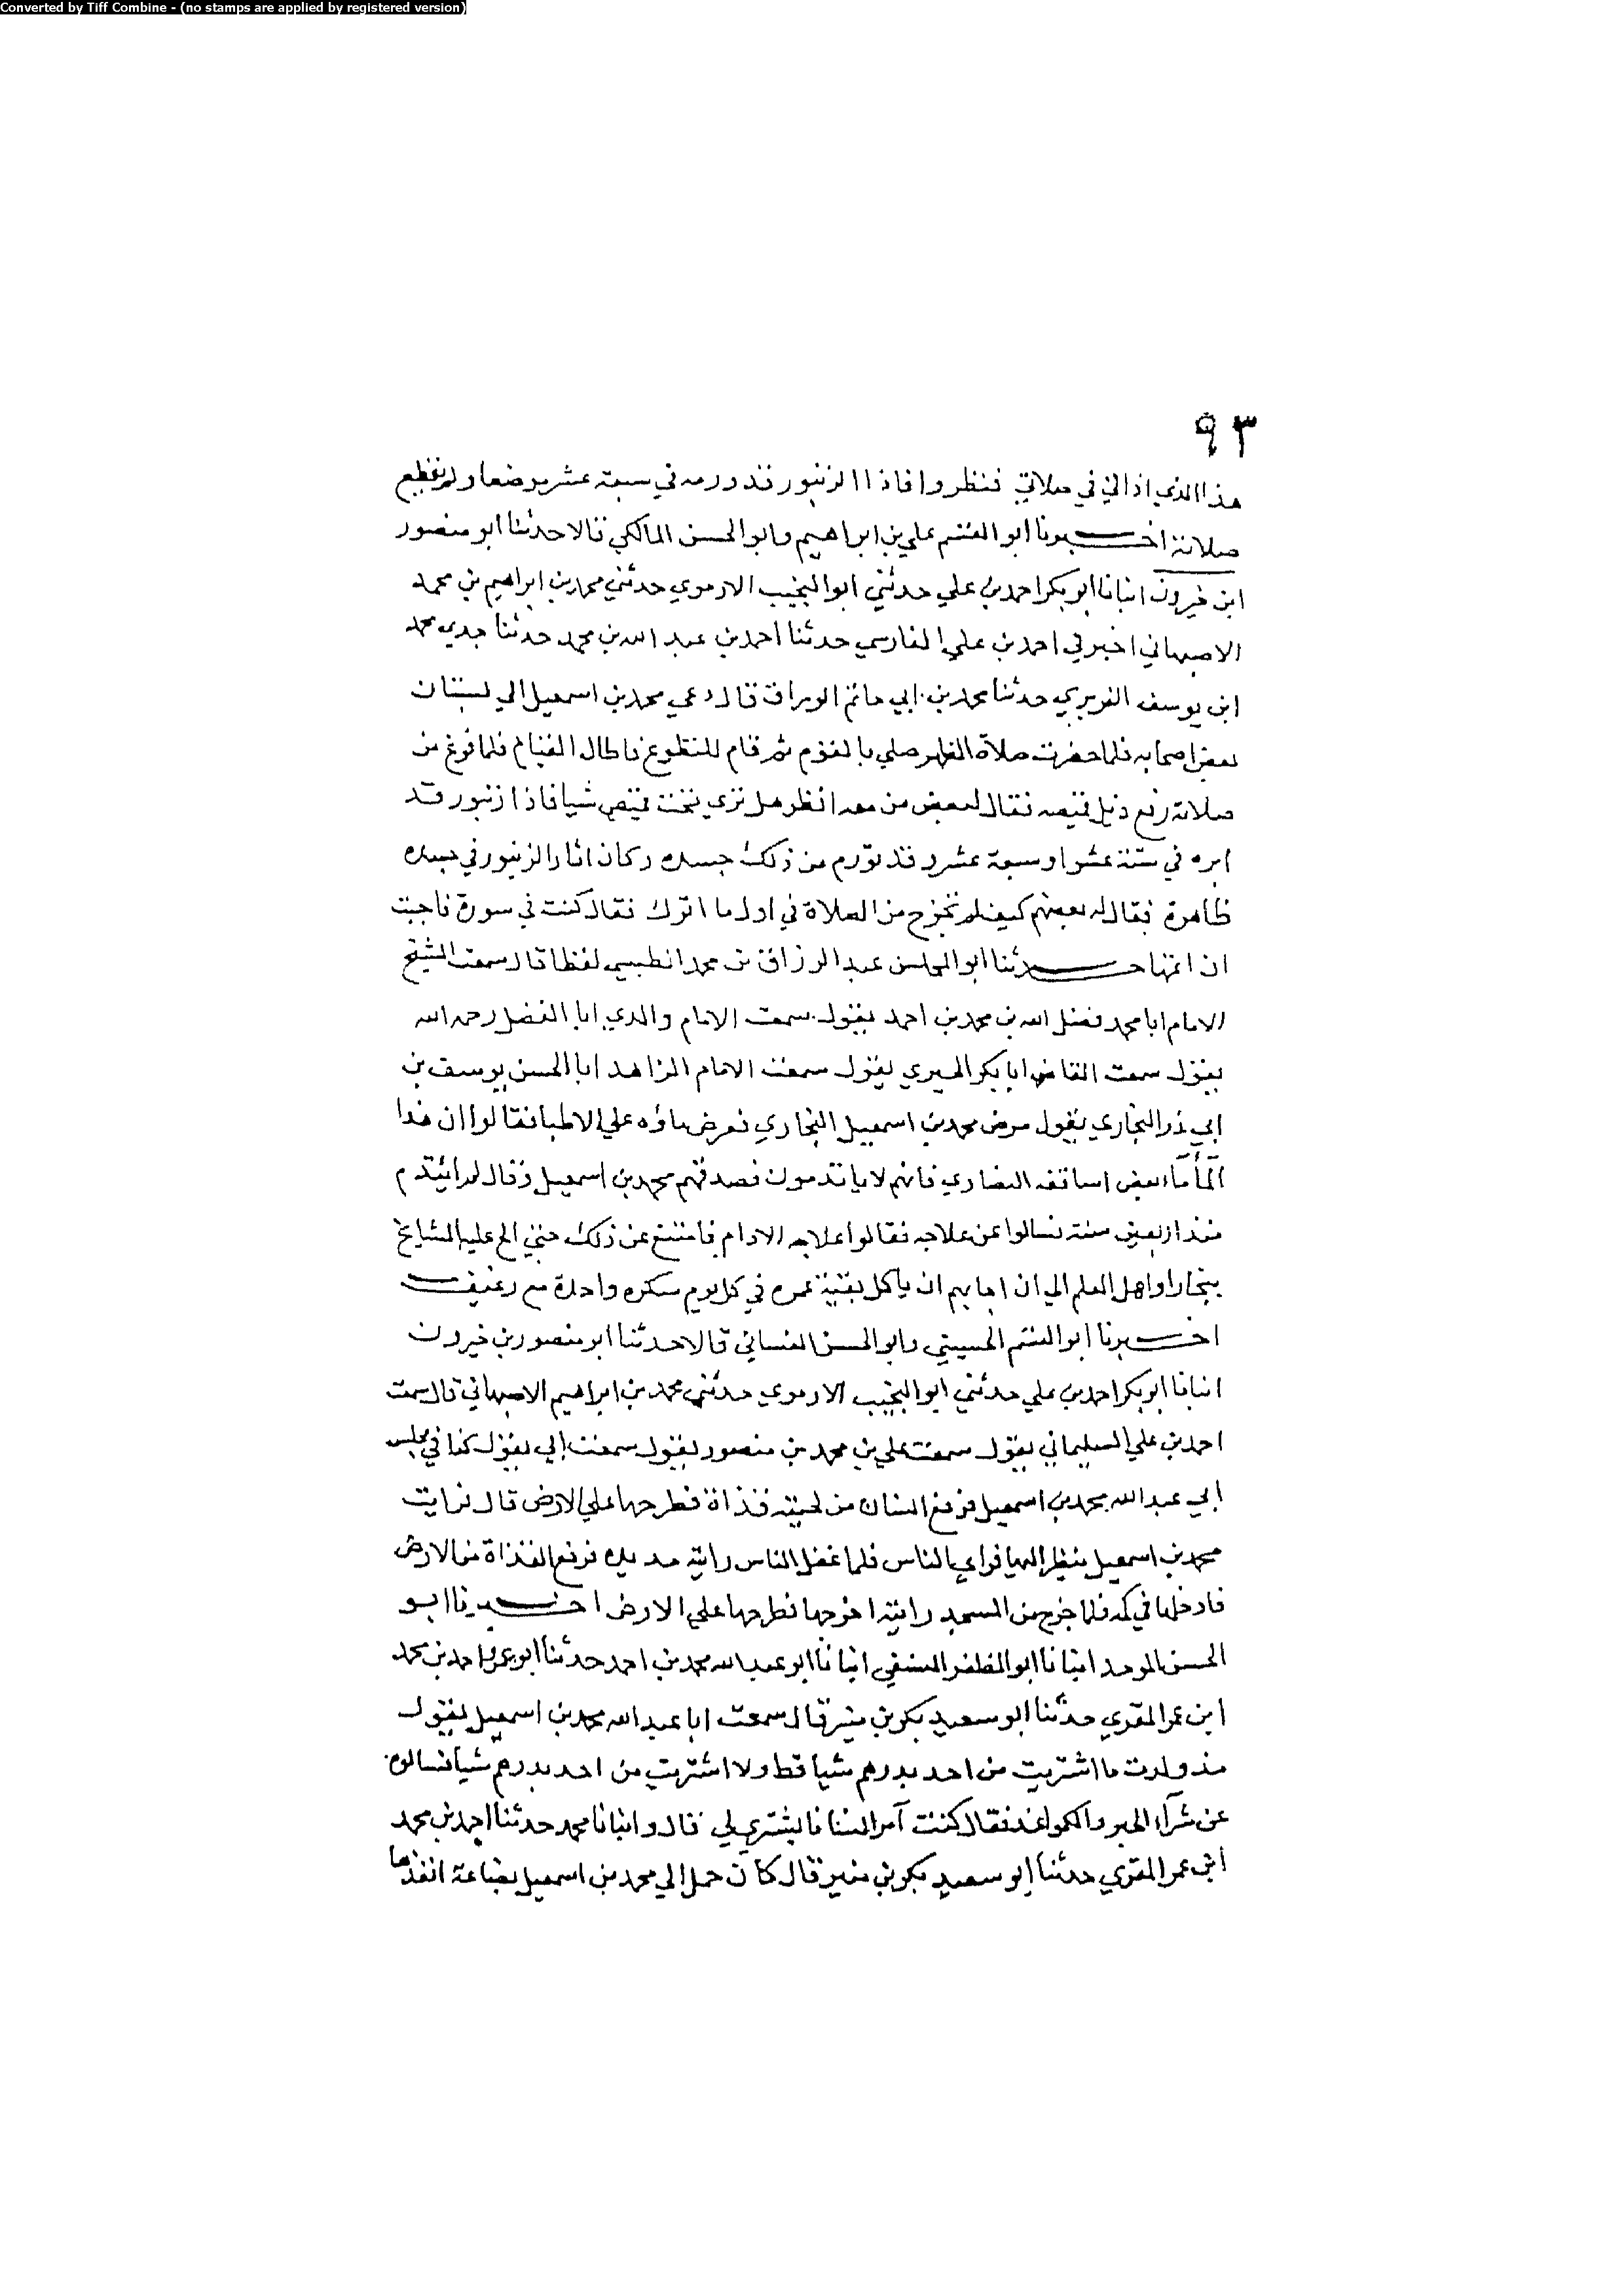 Converted by Tiff Combine - (no stamps are applied by registered version)
٩٣
هذا الذي اذاني في صلاتي فنظروا فاذا الزنبور قد ورمه في سبعة عشر موضعا ولم يقطع
صلاته اخبرنا ابو القسم علي بن ابراهيم وابو الحسن المالكي قالا حدثنا ابو منصور
ابن خيرون انبانا ابو بكر احمد بن علي حدثني ابو النجيب الارموي حدثني محمد بن ابراهيم بن محمد
الاصبهاني اخبرني احمد بن علي الفارسي حدثنا احمد بن عبد الله بن محمد حدثنا جدي محمد
ابن يوسف الفربري حدثنا محمد بن ابي حاتم الوراق قال دعي محمد بن اسمعيل الي بستان
بعض اصحابه فلما حضرت صلاة الظهر صلي بالقوم ثم قام للتطوع فاطال القيام فلما فرغ من
صلاته رفع ذيل قميصه فقال لبعض من معه انظر هل تري تحت قميصي شيا فاذا زنبور قد
ابره في ستة عشر او سبعة عشر وقد تورم من ذلك جسده وكان اثار الزنبور في جسده
ظاهرة فقال له بعضهم كيف لم تخرج من الصلاة في اول ما ابرك فقال كنت في سورة فاحببت
ان اتمها حدثنا ابو المحاسن عبد الرزاق بن محمد الطبسي لفظا قال سمعت الشيخ
الامام ابا محمد فضل الله بن محمد بن احمد يقول سمعت الامام والدي ابا الفضل رحمه الله
يقول سمعت القاضي ابا بكر الحيري يقول سمعت الامام الزاهد ابا الحسن يوسف بن
ابي ذر البخاري يقول مرض محمد بن اسمعيل البخاري فعرض ماؤه علي الاطبا فقالوا ان هذا
الماء ماء بعض اساقفه النصاري فانهم لا ياتدمون فصدقهم محمد بن اسمعيل وقال لم ائتدم
منذ اربعين سنة فسالوا عن علاجه فقالوا علاجه الادام فامتنع عن ذلك حتي الح عليه المشايخ
ببخارا واهل العلم الي ان اجابهم ان ياكل بقية عمره في كل يوم سكره واحدة مع رغيف
اخبرنا ابو القسم الحسيني وابو الحسن الغساني قالا حدثنا ابو منصور بن خيرون
انبانا ابو بكر احمد بن علي حدثني ابو النجيب الارموي حدثني محمد بن ابراهيم الاصبهاني قال سمعت
احمد بن علي السليماني يقول سمعت علي بن محمد بن منصور يقول سمعت ابي يقول كنا في مجلس
ابي عبد الله محمد بن اسمعيل فرفع انسان من لحيته قذاة فطرحها علي الارض قال فرايت
محمد بن اسمعيل ينظر اليها والي الناس فلما غفل الناس رايته مد يده فرفع القذاة من الارض
فادخلها في كمه فلما خرج من المسجد رايته اخرجها فطرحها علي الارض اخبرنا ابو
الحسن الموحد انبانا ابو المظفر النسفي انبانا ابو عبد الله محمد بن احمد حدثنا ابو عمرو احمد بن محمد
ابن عمر المقري حدثنا ابو سعيد بكر بن منير قال سمعت ابا عبد الله محمد بن اسمعيل يقول
منذ ولدت ما اشتريت من احد بدرهم شيا قط ولا اشتريت من احد بدرهم شيا فسالوه
عن شرآء الحبر والكواغد فقال كنت آمر انسانا يشتري لي قال وانبانا محمد حدثنا احمد بن محمد
ابن عمر المقري حدثنا ابو سعيد بكر بن منير قال كان حمل الي محمد بن اسمعيل بضاعة انفذها